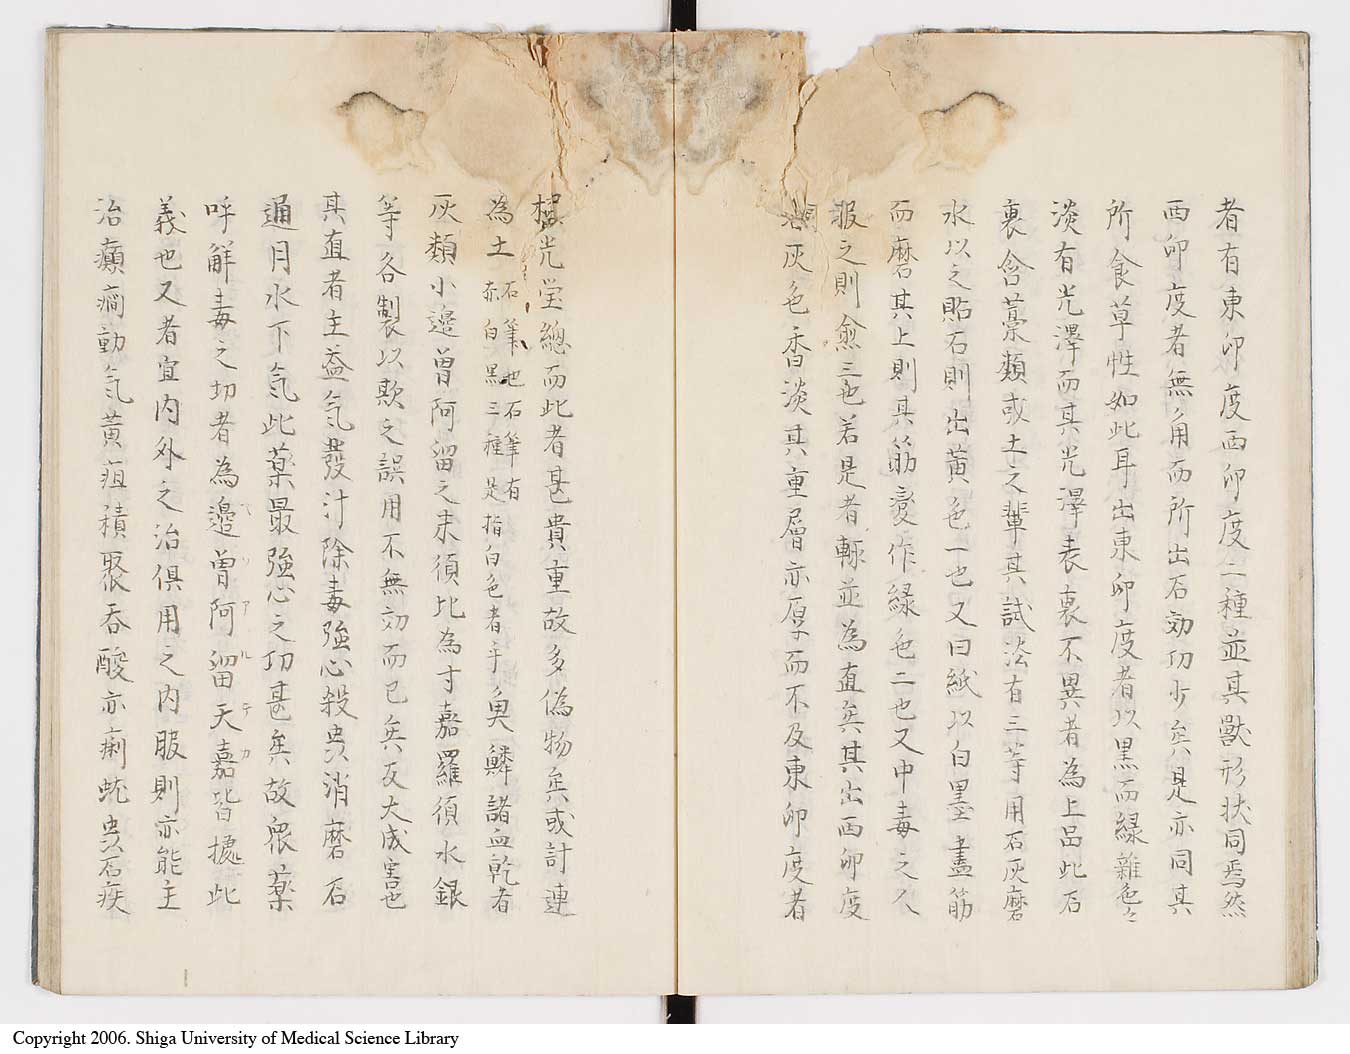 者有東印度西印度二種並其獣形状同焉然
西印度者無角而所出石効功少矣是亦同其
所食草性如此耳出東印度者以黒而緑雑色々
淡有光澤而其光澤表裏不異者為上品此石
裏含藁類或土之輩其試法有三等用石灰磨
水以之貼石則出黄色一也又曰紙以白墨畫筋
而磨石其上則其筋変作緑色二也又中毒之人
服之則愈三也若是者輙並為直矣其出西印度
灰色香淡其重層亦厚而不及東印度者
光瑩總而此者甚貴重故多偽物矣或計連
為土
石筆也石筆有
赤白黒三種是指白色者乎
魚鱗諸血乾者
灰類小邊曽阿留之末須比為寸嘉羅須水銀
等各製以欺之誤用不無効而已矣反大成害也
其直者主益気發汁除毒強心殺虫消磨石
通月水下気此薬最強心之功甚矣故衆薬
呼解毒之切者為邊曽阿留天嘉皆據此
ヘソアルテカ
義也又者宜内外之治倶用之内服則亦能主
治癲癇動気黄疸積聚呑酸亦痢蚘虫石疾
Copyright 2006. Shiga University of Medical Science Library